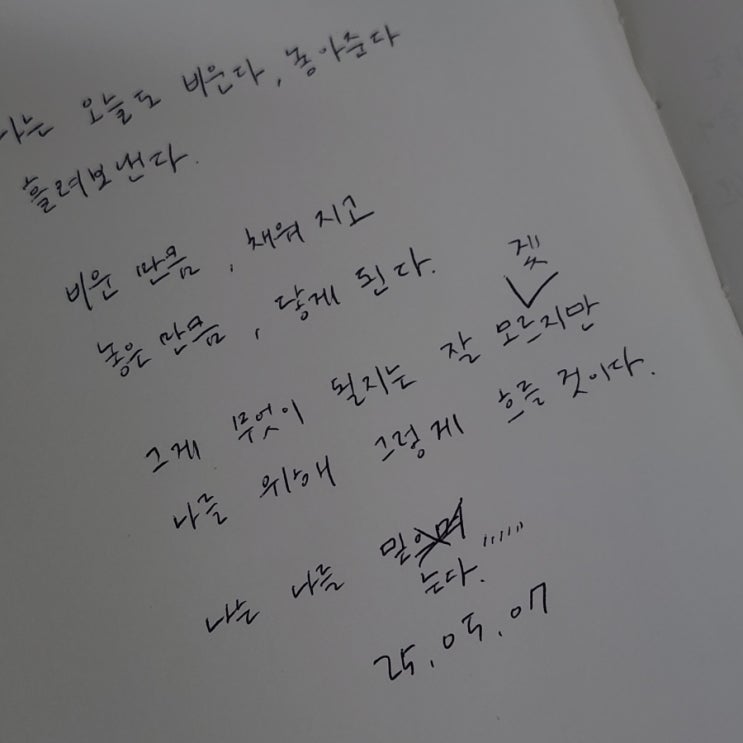 나는 오늘도 비운다, 놓아준다
흘려보낸다.
비운 만큼, 채워 지고
놓은 만큼, 닿게 된다.
겠
그게 무엇이 될지는 잘 모르지만
나를 위해 그렇게 흐를 것이다.
나는 나를 믿으며......
는다.
25.05.07